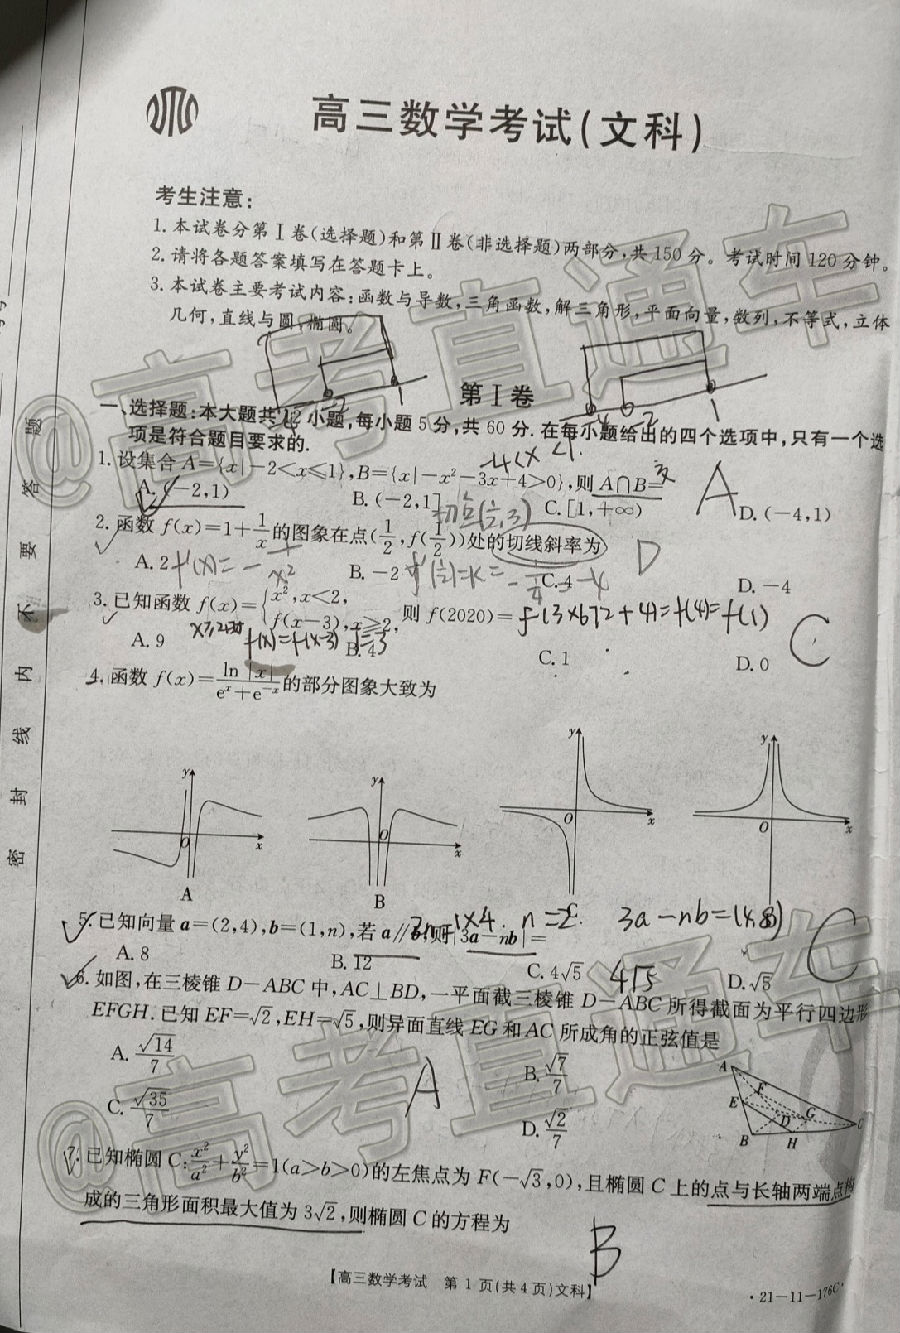 高三数学考试(文科)
考生注意:
1.本试卷分第Ⅰ卷(选择题)和第Ⅱ卷(非选择题)两部分,共150分。考试时间120分钟。
2.请将各题答案填写在答题卡上。
3.本试卷主要考试内容:函数与导数,三角函数,解三角形,平面向量,数列,不等式,立体
几何,直线与圆,椭圆。
第Ⅰ卷
一、选择题:本大题共12小题,每小题5分,共60分.在每小题给出的四个选项中,只有一个选
项是符合题目要求的.
-4<x<1.
1.设集合A={x|-2<x≤1},B={x|-x²-3x+4>0},则A∩B=
A.(-2,1) B.(-2,1] C.[1,+∞) D.(-4,1)
A
切点(1/2,3)
2.函数f(x)=1+1/x的图象在点(1/2,f(1/2))处的切线斜率为
D
A.2 B.-2 C.4 D.-4
f'(x)=-1/x²
3.已知函数f(x)={x²,x<2, f(x-3),x≥2,则f(2020)=
f(3×672+4)=f(4)=f(1)
C
f(x)=f(x-3)
A.9 B.4 C.1 D.0
4.函数f(x)=ln|x|/(eˣ+e⁻ˣ)的部分图象大致为
y O x
y O x
y O x
y O x
A B C
5.已知向量a=(2,4),b=(1,n),若a∥b,则|3a-nb|=
n=2. 3a-nb=(4,8)
C
A.8 B.12 C.4√5 D.√5
4√5
6.如图,在三棱锥D-ABC中,AC⊥BD,一平面截三棱锥D-ABC所得截面为平行四边形
EFGH.已知EF=√2,EH=√5,则异面直线EG和AC所成角的正弦值是
A.√14/7 B.√7/7
C.√35/7 D.√2/7
A
A F E G D C B H
7.已知椭圆C:x²/a²+y²/b²=1(a>b>0)的左焦点为F(-√3,0),且椭圆C上的点与长轴两端点构
成的三角形面积最大值为3√2,则椭圆C的方程为
B
【高三数学考试 第1页(共4页)文科】
·21-11-126C·
密 封 线 内 不 要 答 题
@高考直通车
@高考直通车